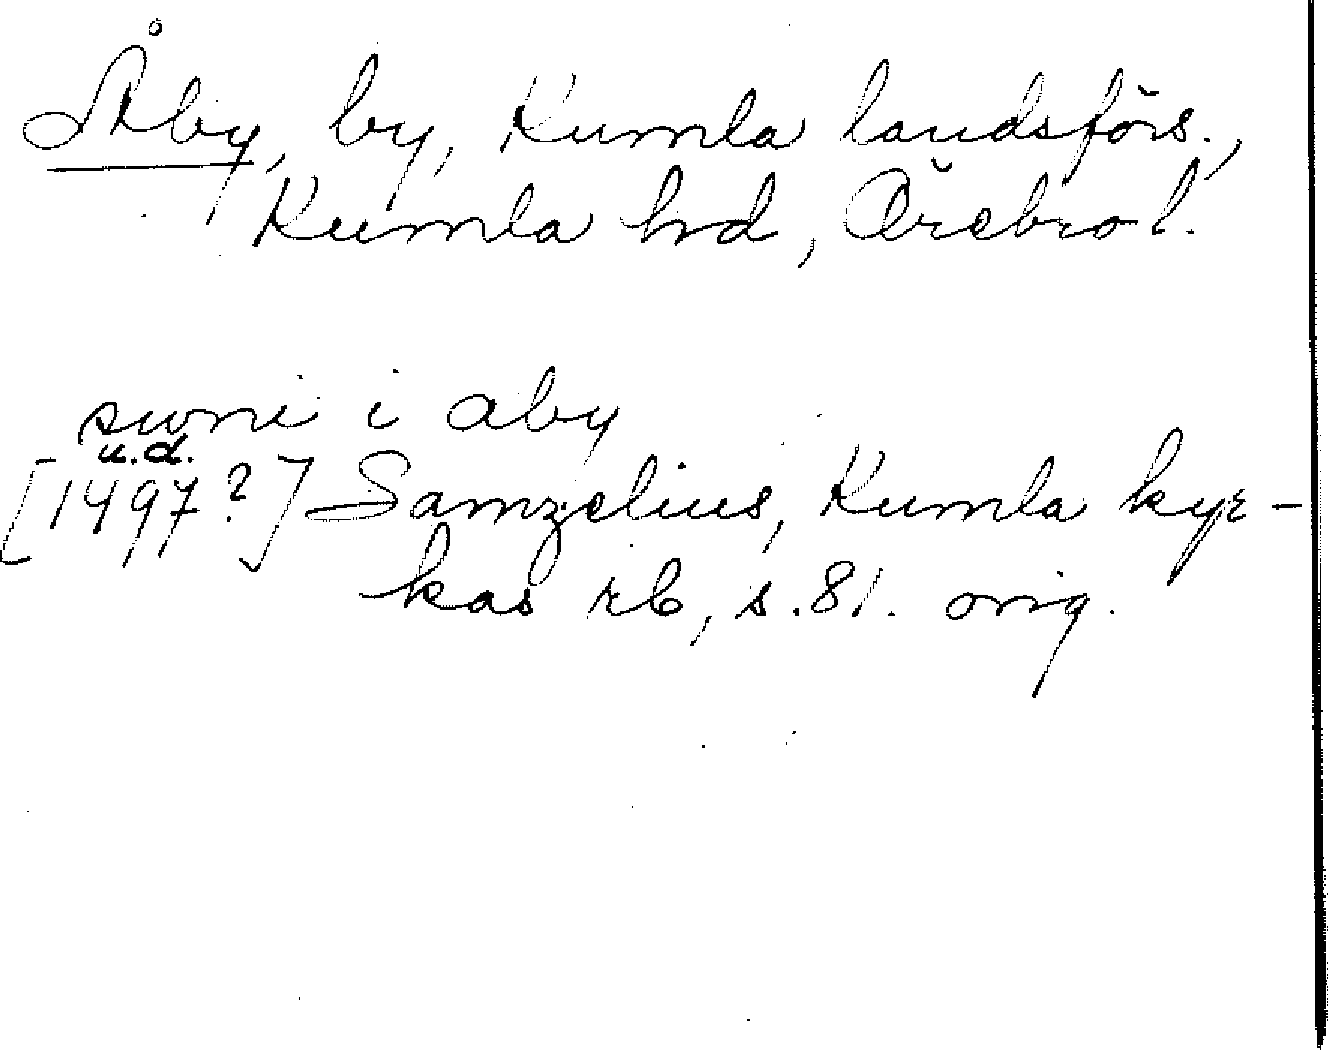 Åby, by, Kumla landsförs.,
Kumla hd, Örebro l.
swni i aby
u.d.
[1497?] Samzelius, Kumla kyr-
kas rb, s. 81. orig.